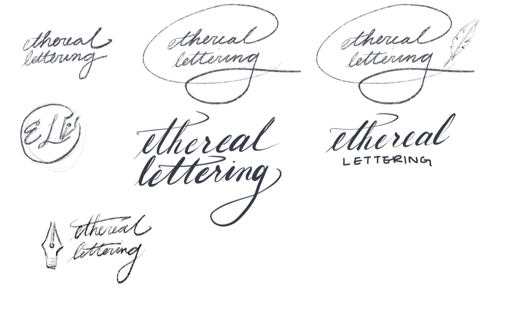 ethereal
lettering
ethereal
lettering
ethereal
lettering
ethereal
lettering
ethereal
LETTERING
ethereal
lettering